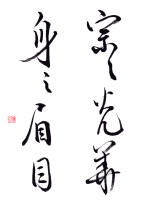 宗之光華
身之眉目